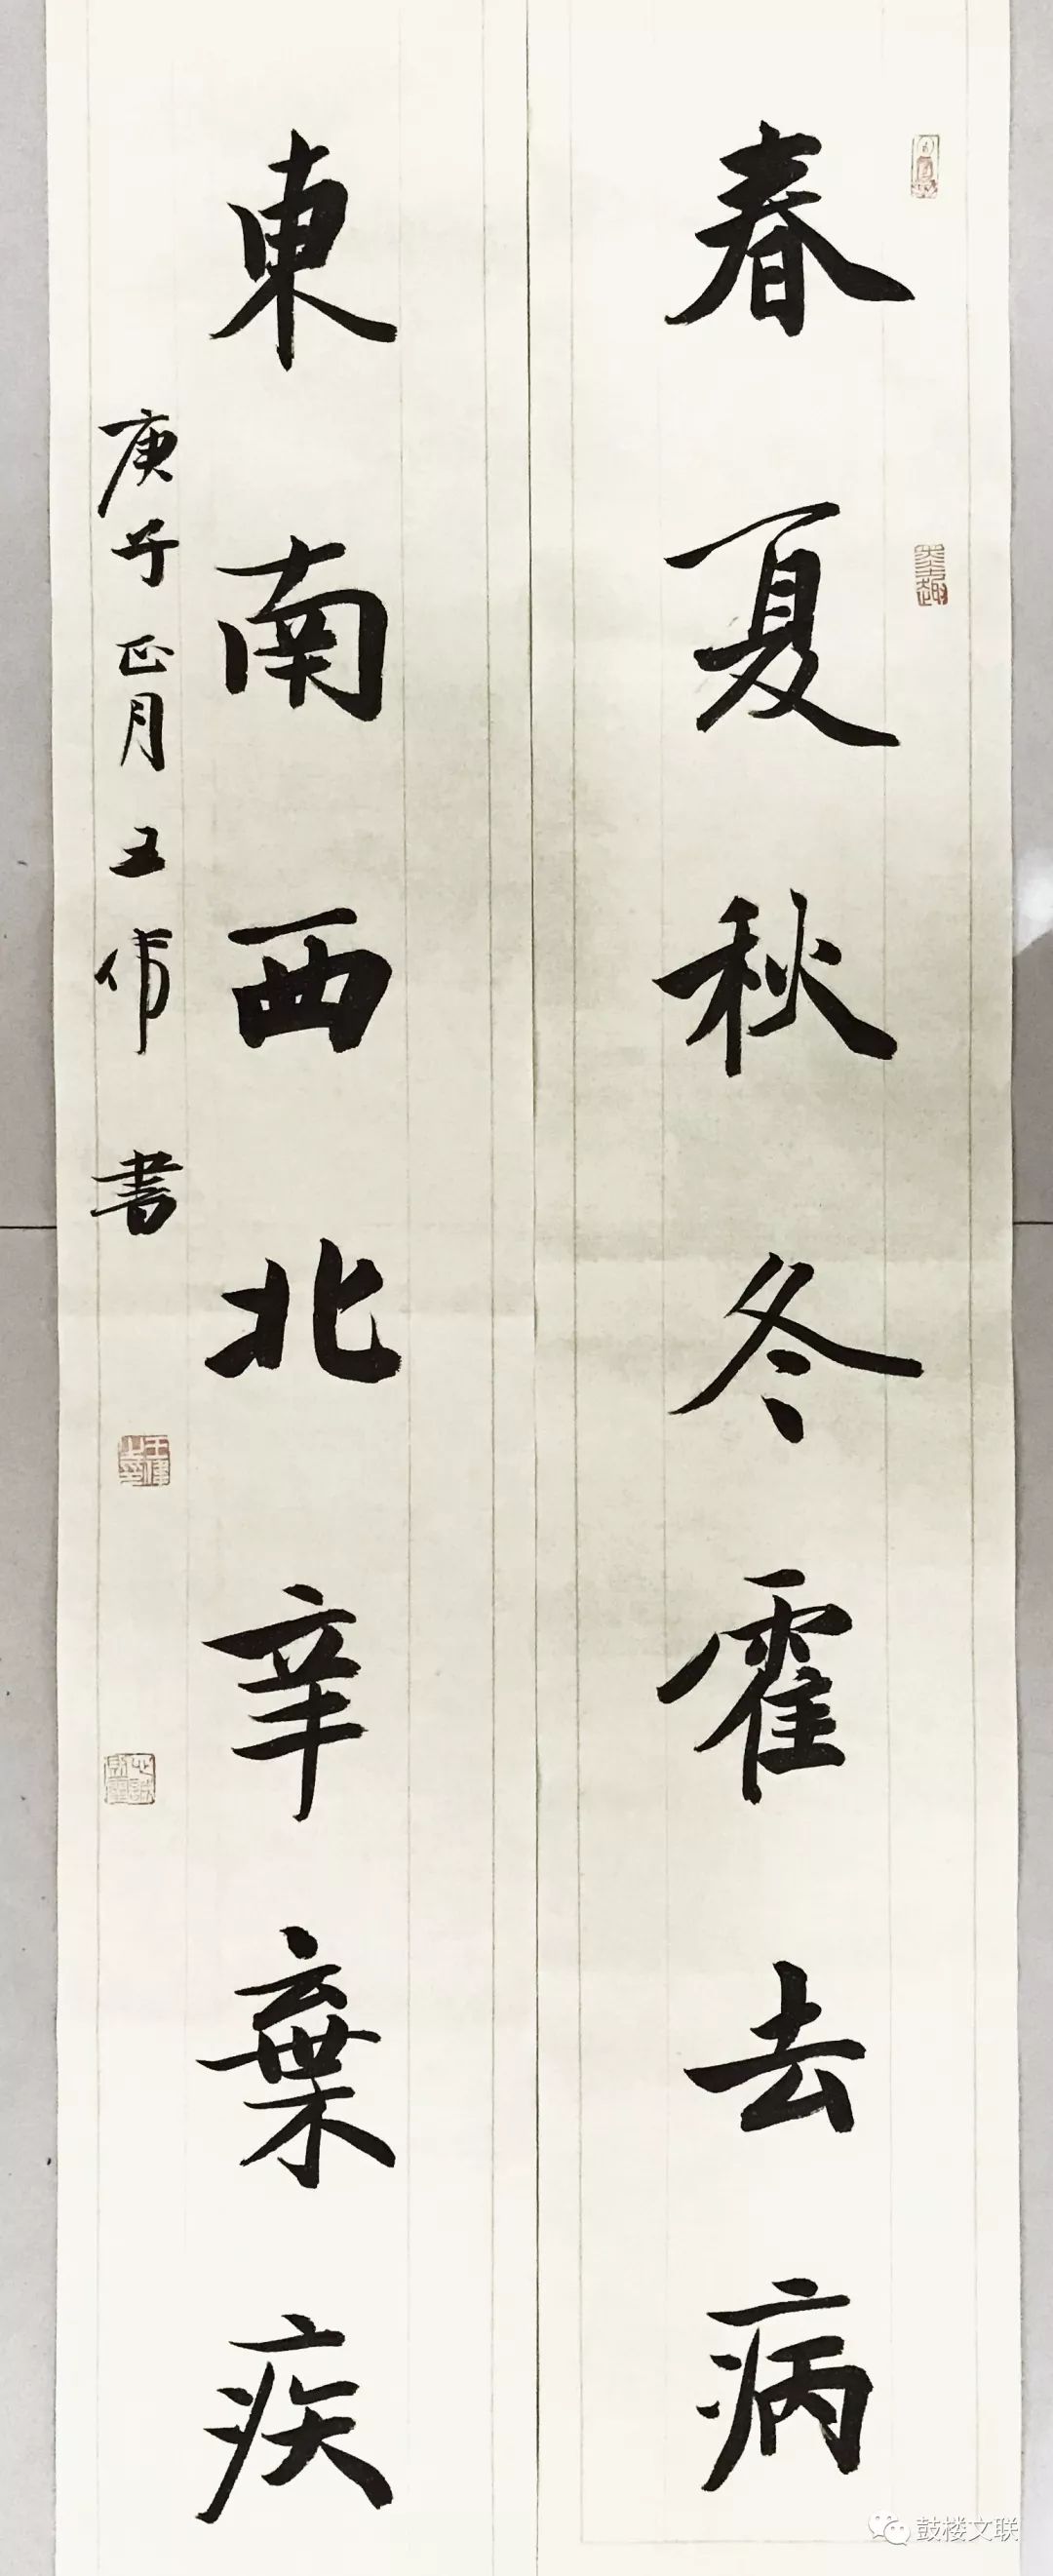 春夏秋冬霍去病
東南西北辛棄疾
庚子正月王偉書
墨趣
鼓楼文联